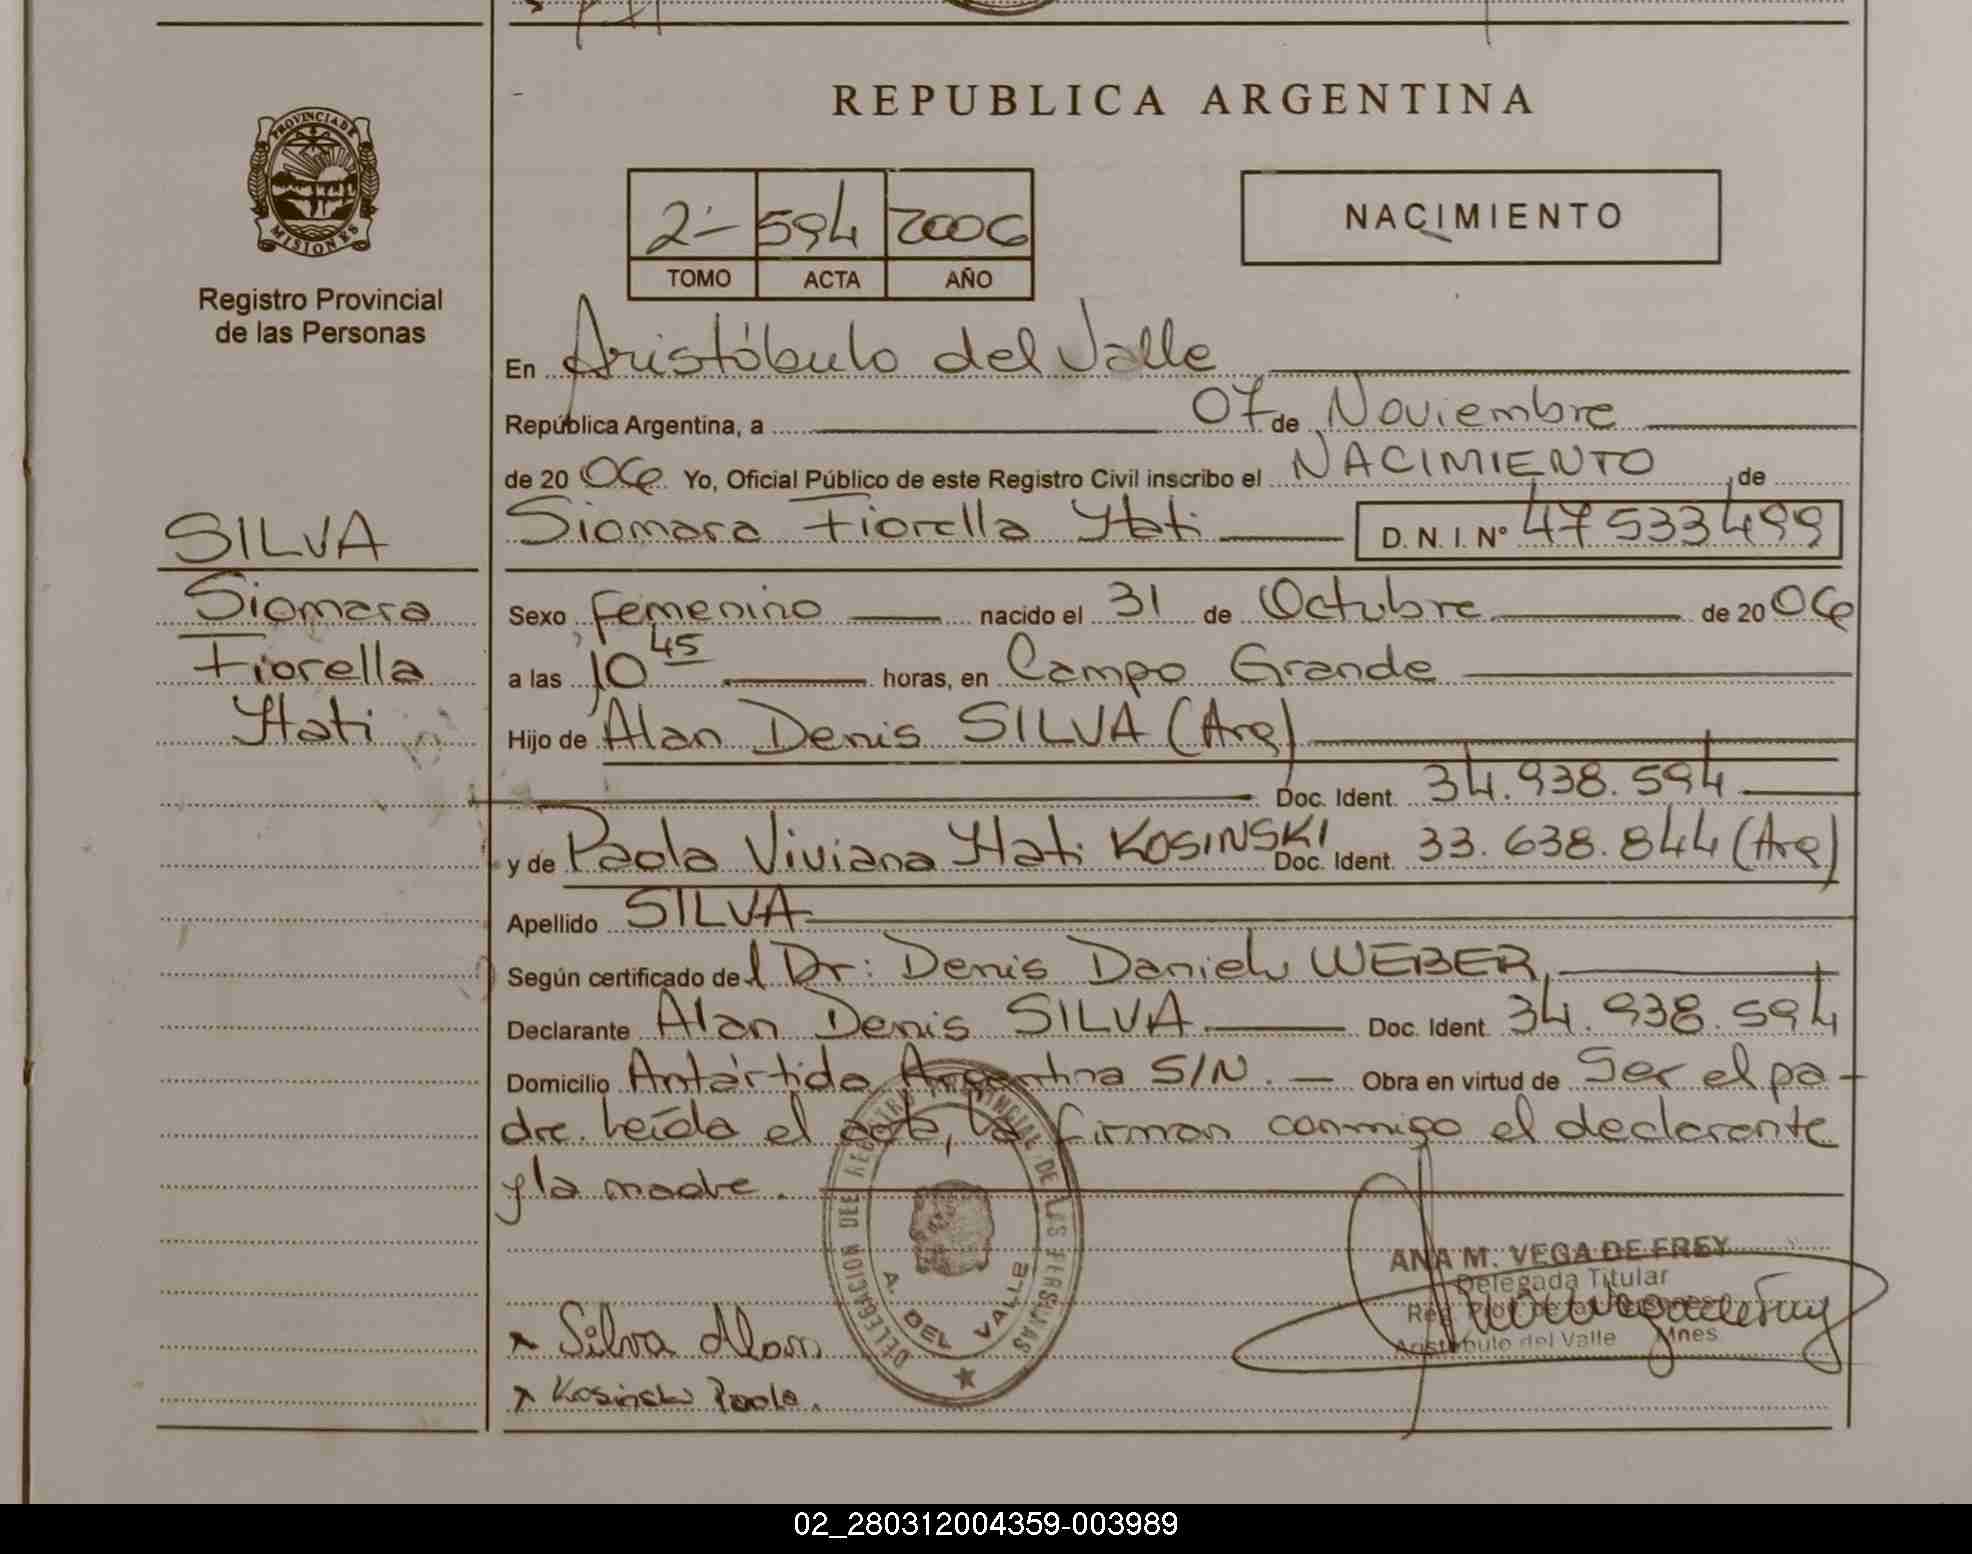 REPUBLICA ARGENTINA
PROVINCIA DE MISIONES
Registro Provincial
de las Personas
2- 594 2006
TOMO ACTA AÑO
NACIMIENTO
En Aristóbulo del Valle
República Argentina, a 07 de Noviembre
de 20 06 Yo, Oficial Público de este Registro Civil inscribo el NACIMIENTO de
Siomara Fiorella Itati D. N. I. Nº 47533499
SILVA
Siomara
Fiorella
Itati
Sexo femenino nacido el 31 de Octubre de 20 06
a las 10 45 horas, en Campo Grande
Hijo de Alan Denis SILVA (Arg)
Doc. Ident. 34.938.594
y de Paola Viviana Itati KOSINSKI Doc. Ident. 33.638.844 (Arg)
Apellido SILVA
Según certificado del Dr: Denis Daniel WEBER
Declarante Alan Denis SILVA Doc. Ident. 34.938.594
Domicilio Antártida Argentina S/N. Obra en virtud de Ser el pa-
dre. Leída el acta, la firman conmigo el declarante
y la madre.
DELEGACION DEL REGISTRO PROVINCIAL DE LAS PERSONAS
A. DEL VALLE
ANA M. VEGA DE FREY
Delegada Titular
Reg. Prov. de las Personas
Aristobulo del Valle Mnes
Silva Alan
Kosinski Paola.
02_280312004359-003989